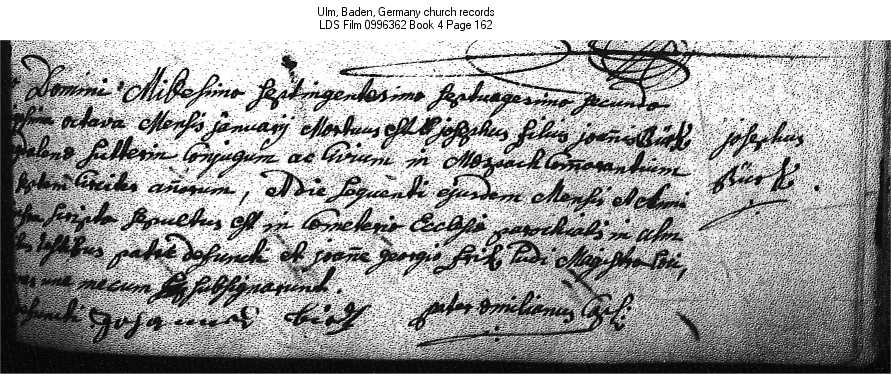 Ulm, Baden, Germany church records
LDS Film 0996362 Book 4 Page 162
Domini Millesimo septingentesimo septuagesimo secundo
octava Mensis januarij Mortuus est josephus filius joañis Bürk
Sutterin Conjugum ac Civium in Mosbach Comorantium
septem Circiter añorum, et die sequenti ejusdem Mensis et Anni
supra scripto sepultus est in Cemeterio Ecclesiæ parochialis in Ulm
testibus patre defuncti et joañe georgio Ludi Magistro
mecum subsignarunt.
defuncti
pater Emilianus
josephus
Bürk.